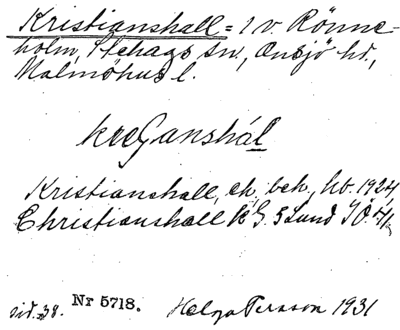 Kristianshall = l v. Rönne-
holm, Stehags sn, Onsjö hd,
Malmöhus l.
Kristianshall, eh, beh., hb. 1924
Christianshall kG. 5 Lund
sid. 38. Nr 5718. Helga Persson 1931